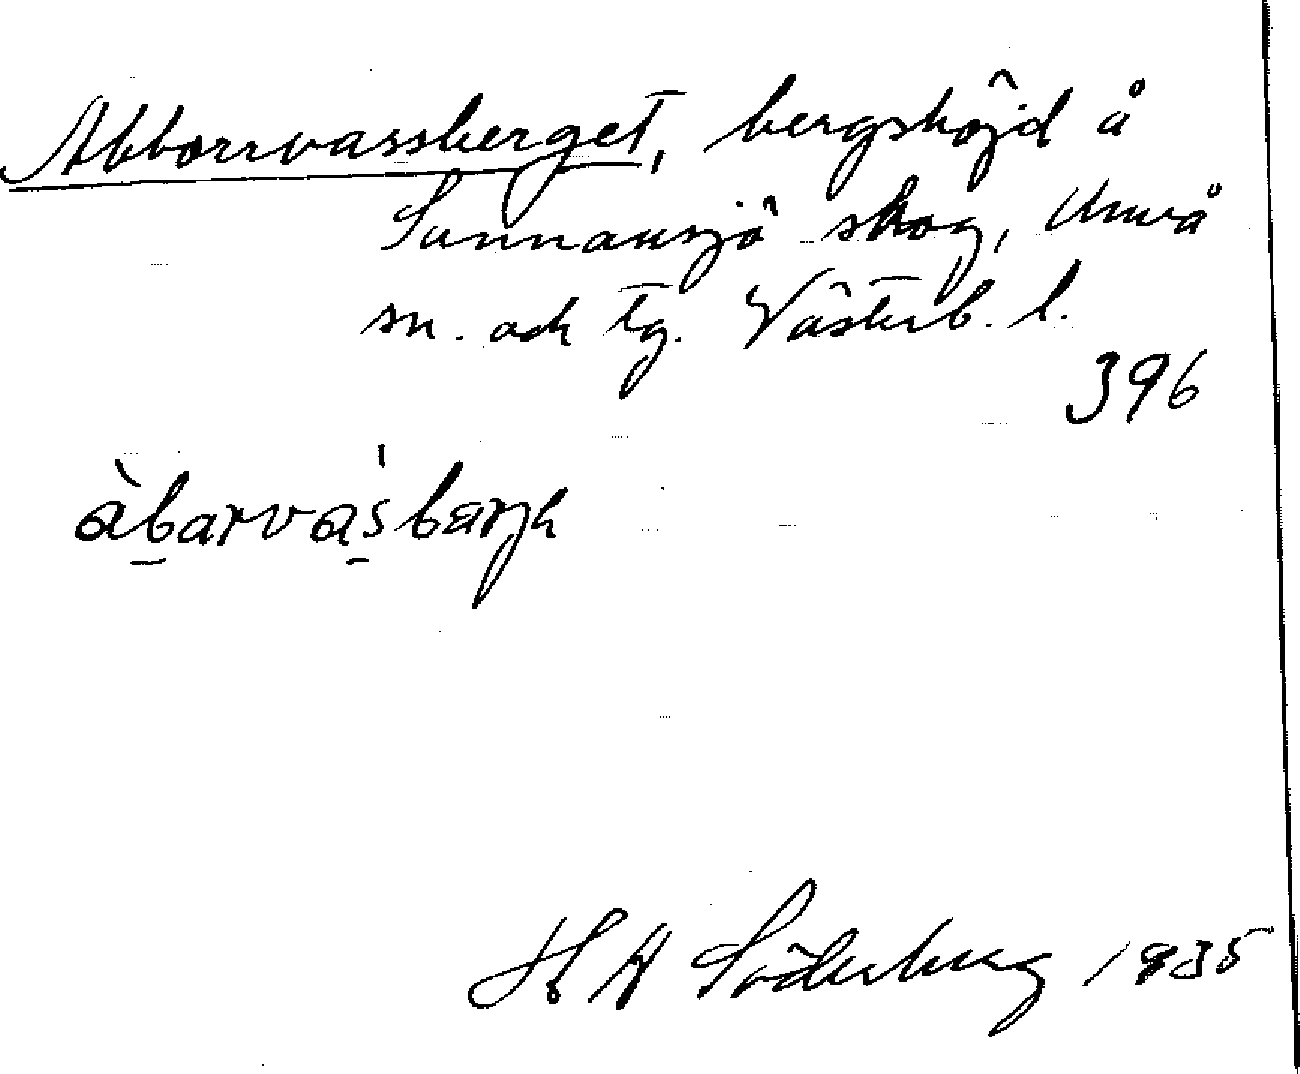 Abborrvassberget, bergshöjd å
Sunnansjö skog, Umeå
sn. och tg. Västerb. l.
396
àbarvásbarjh
H A Söderberg 1935